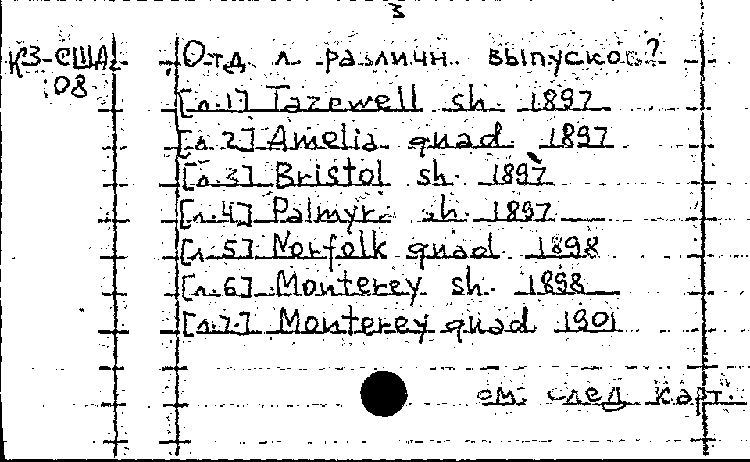 3
КЗ-США
:08
Отд л. различн. выпусков?
[л.1] Tazewell sh. 1897
[л.2] Amelia quad 1897
[л.3] Bristol sh. 1897
[л.4] Palmyra sh. 1897
[л.5] Norfolk quad 1898
[л.6] Monterey sh. 1898
[л.7.] Monterey quad 1901
см. след карт.